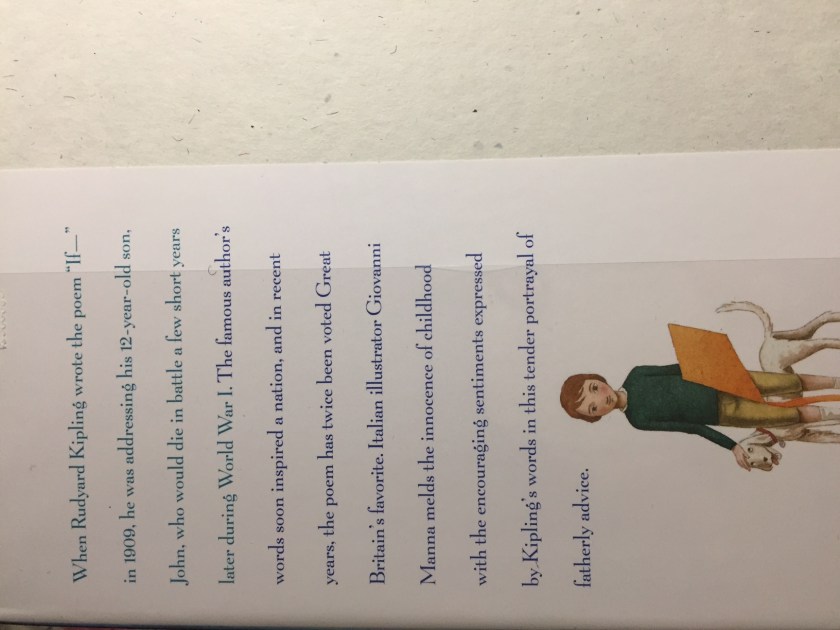 When Rudyard Kipling wrote the poem “If—”
in 1909, he was addressing his 12-year-old son,
John, who would die in battle a few short years
later during World War I. The famous author’s
words soon inspired a nation, and in recent
years, the poem has twice been voted Great
Britain’s favorite. Italian illustrator Giovanni
Manna melds the innocence of childhood
with the encouraging sentiments expressed
by Kipling’s words in this tender portrayal of
fatherly advice.